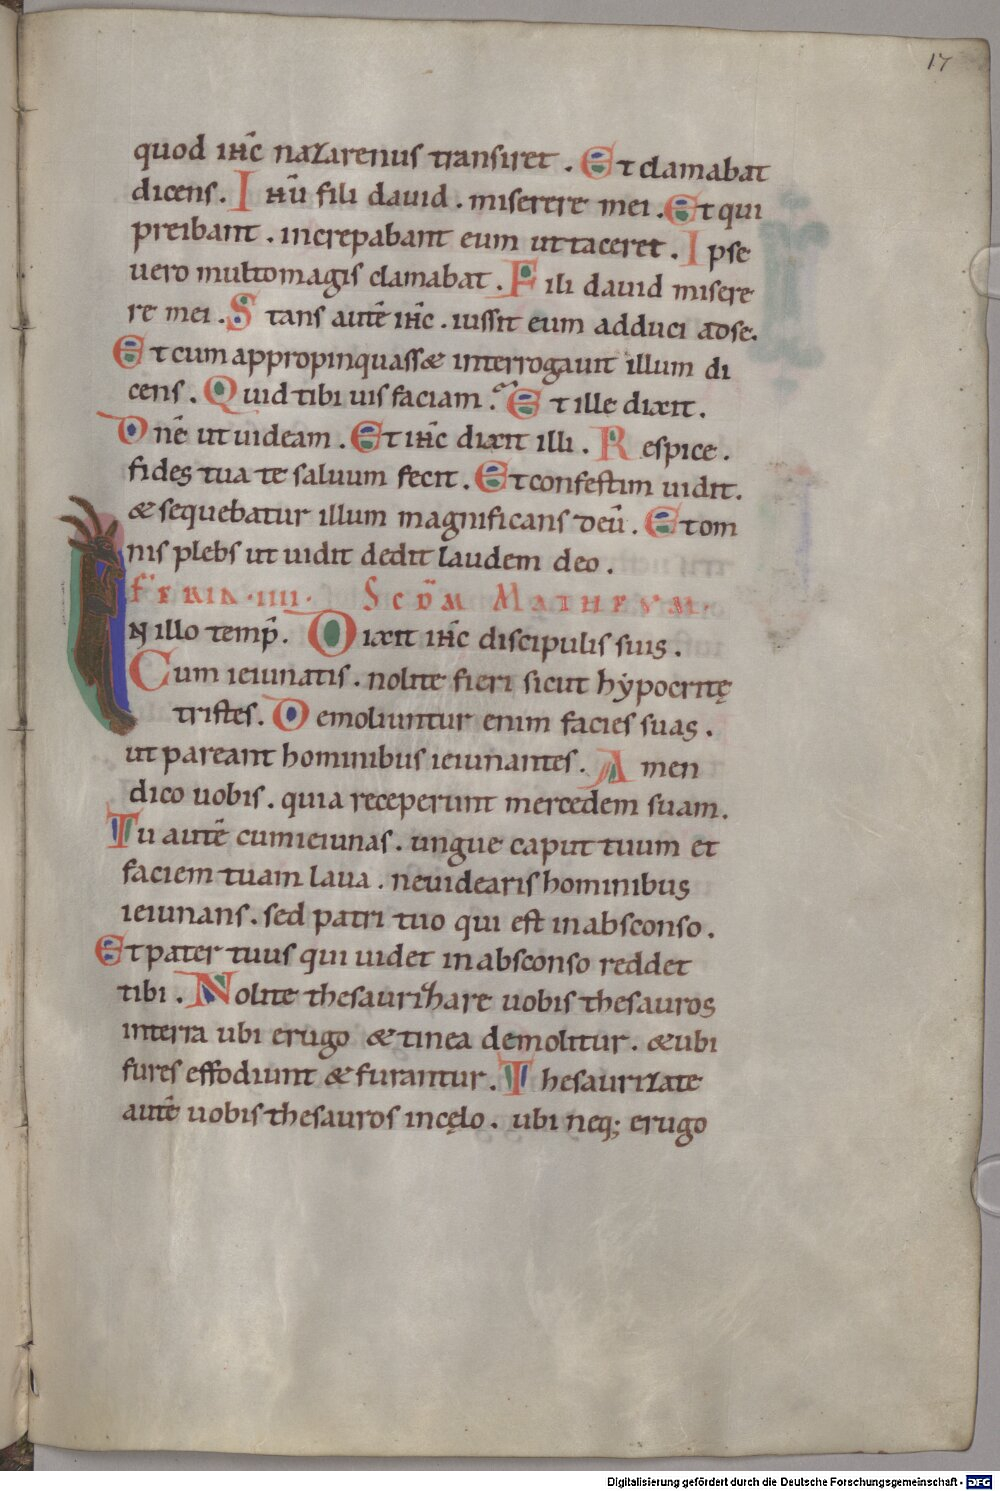 17
quod ihc̄ nazarenus transiret . Et clamabat
dicens . Ihū fili david . miserere mei . Et qui
preibant . increpabant eum ut taceret . Ipse
vero multomagis clamabat . Fili david misere
re mei . Stans autē ihc̄ . iussit eum adduci adse.
Et cum appropinquass& interrogavit illum di
cens . Quid tibi vis faciam . Et ille dixit .
Dn̄e ut videam . Et ihc̄ dixit illi . Respice .
fides tua te saluum fecit . Et confestim vidit .
& sequebatur illum magnificans deū . Et om
nis plebs ut vidit dedit laudem deo .
FERIA . IIII . SCDM MATHEVM .
IN illo temp̄ . Dixit ihc̄ discipulis suis .
Cum ieiunatis . nolite fieri sicut hypocritę
tristes . Demoliuntur enim facies suas .
ut pareant hominibus ieiunantes . Amen
dico vobis . quia receperunt mercedem suam .
Tu autē cum ieiunas . ungue caput tuum et
faciem tuam lava . nevidearis hominibus
ieiunans . sed patri tuo qui est inabsconso .
Et pater tuus qui videt inabsconso reddet
tibi . Nolite thesaurihare vobis thesauros
interra ubi erugo & tinea demolitur . & ubi
fures effodiunt & furantur . Thesaurizate
autē vobis thesauros incęlo . ubi neq; erugo
Digitalisierung gefördert durch die Deutsche Forschungsgemeinschaft - DFG